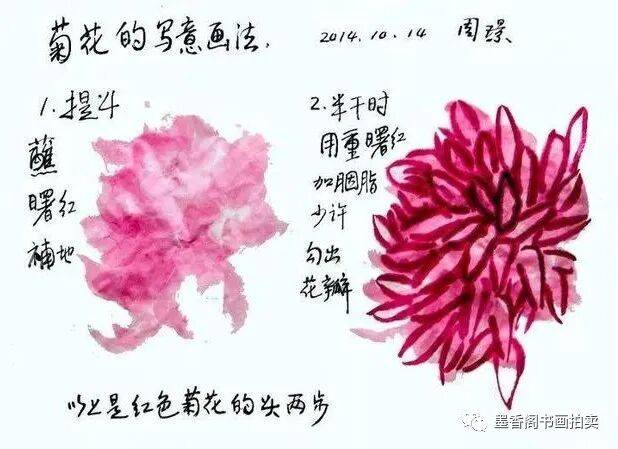 菊花的写意画法.
2014.10.14 周璟
1.提斗
蘸
曙红
補地
2.半干时
用重曙红
加胭脂
少许
勾出
花瓣
以上是红色菊花的头两步
墨香阁书画拍卖